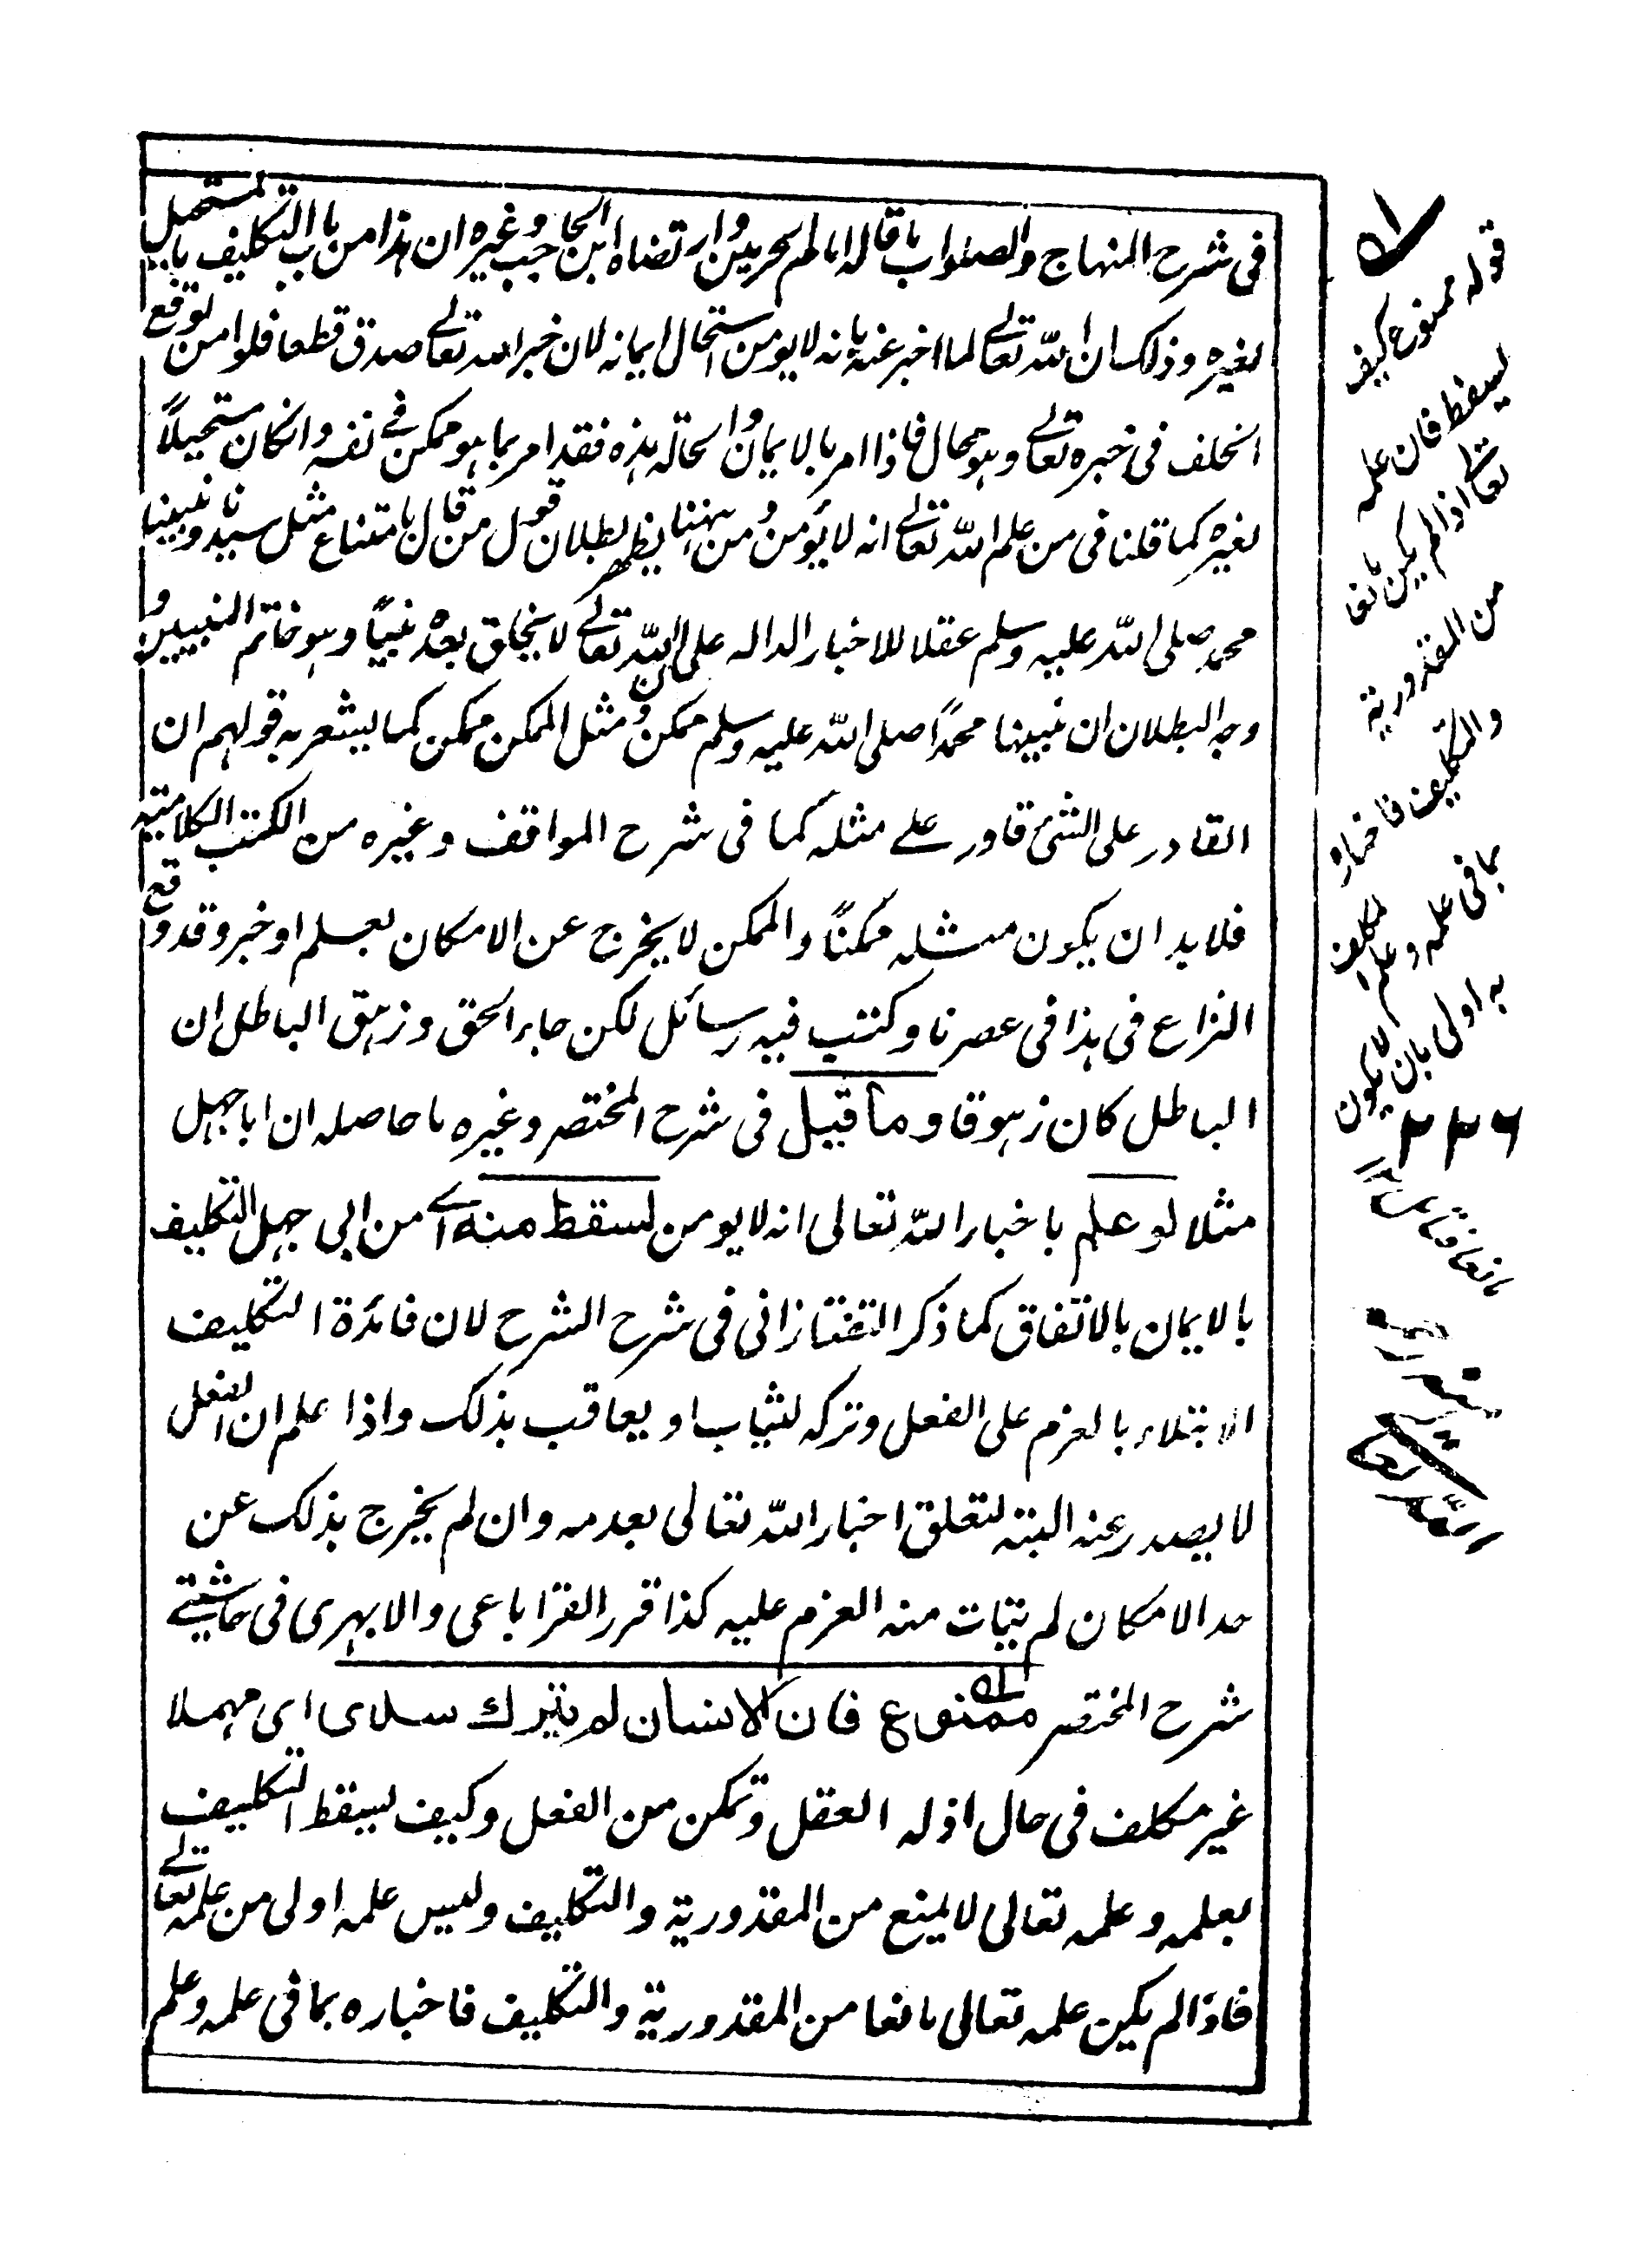 في شرح المنهاج والصواب ما قاله امام الحرمين وارتضاه ابن الحاجب وغيره ان هذا من باب التكليف بالمستحيل
لغيره وذلك ان الله تعالى لما اخبر عنه بانه لا يومن استحال ايمانه لان خبر الله تعالى صدق قطعا فلو امن لوقع
الخلف في خبره تعالى وهو محال فاذا امر بالايمان والحالة هذه فقد امر بما هو ممكن في نفسه وانكان مستحيلاً
لغيره كما قلنا في من علم الله تعالى انه لا يؤمن ومن ههنا يظهر بطلان قول من قال بامتناع مثل سيدنا ونبينا
محمد صلى الله عليه وسلم عقلا للاخبار الداله على ان الله تعالى لا يخلق بعده نبياً وهو خاتم النبيين و
وجه البطلان ان نبينا محمداً صلى الله عليه وسلم ممكن ومثل الممكن ممكن كما يشعر به قولهم ان
القادر على الشئ قادر على مثله كما في شرح المواقف وغيره من الكتب الكلامية
فلابد ان يكون مثله ممكناً والممكن لا يخرج عن الامكان بعلم او خبر وقد وقع
النزاع في هذا في عصرنا وكتب فيه رسائل لكن جاء الحق وزهق الباطل ان
الباطل كان زهوقا وما قيل في شرح المختصر وغيره ما حاصله ان ابا جهل
مثلا لو علم باخبار الله تعالى انه لا يومن لسقط منه اي من ابي جهل التكليف
بالايمان بالاتفاق كما ذكر التفتازاني في شرح الشرح لان فائدة التكليف
الابتلاء بالعزم على الفعل وتركه ليثاب او يعاقب بذلك واذا علم ان الفعل
لا يصدر عنه البتة لتعلق اخبار الله تعالى بعدمه وان لم يخرج بذلك عن
حد الامكان لم يتات منه العزم عليه كذا قرر القراباغي والابهري في حاشيتي
شرح المختصر ممنوع فان الانسان لم يترك سداى اى مهملا
غير مكلف في حال اذ له العقل وتمكن من الفعل وكيف يسقط التكليف
بعلمه وعلمه تعالى لا يمنع من المقدورية والتكليف وليس علمه اولى من علمه تعالى
فاذا لم يكن علمه تعالى مانعا من المقدورية والتكليف فاخباره بما في علمه وعلم
قوله ممنوع كيف
يسقط فان علمه
تعالى اذا لم يكن مانعا
من المقدورية
والتكليف فاخباره
بما في علمه وعلم المكلف
به اولى بان لا يكون
مانعا